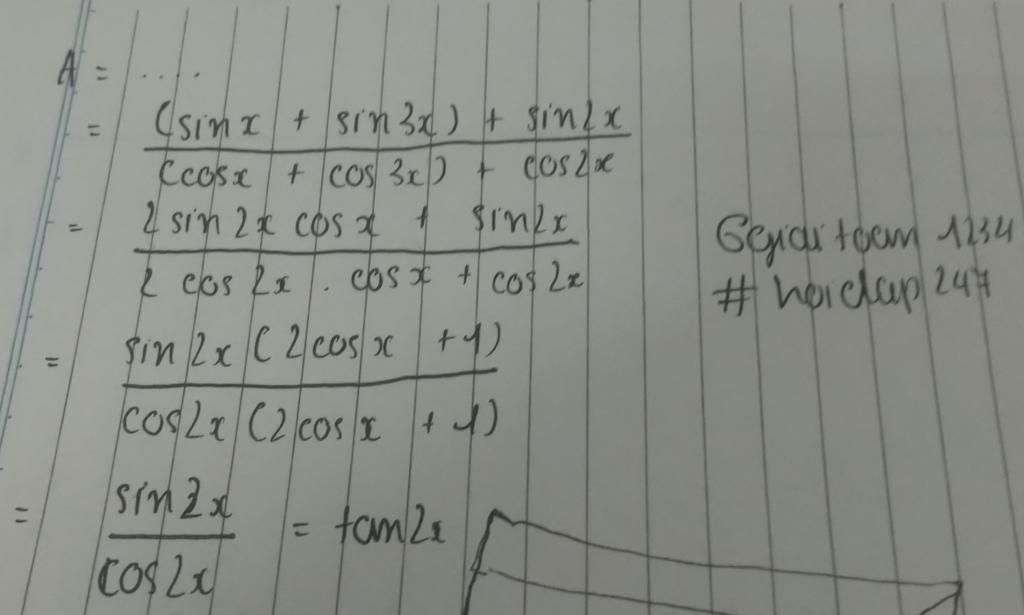 A = ....
= (sin x + sin 3x) + sin 2x
(cosx + cos 3x) + cos 2x
= 2 sin 2x cos x + sin 2x
2 cos 2x . cos x + cos 2x
= sin 2x (2cos x + 1)
cos 2x (2cos x + 1)
= sin 2x
cos 2x
= tan 2x
1234
# hoidap 247